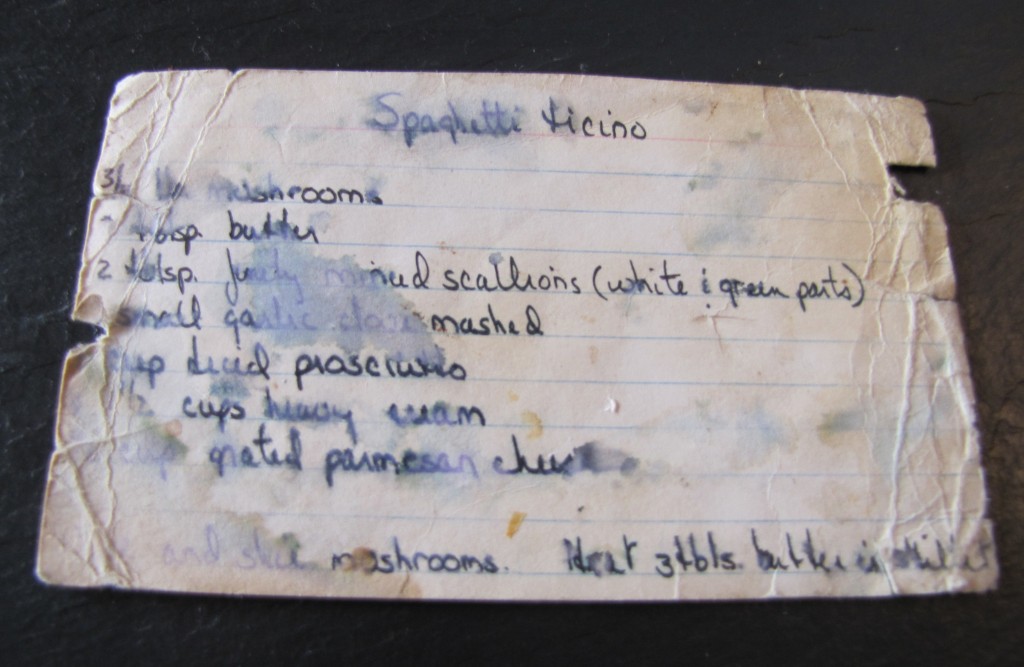 Spaghetti ticino
mushrooms
tblsp. butter
2 tblsp. finely minced scallions (white & green parts)
small garlic clove mashed
cup diced prosciutto
cups heavy cream
cup grated parmesan cheese
and slice mushrooms. Heat 3 tbls. butter in skillet